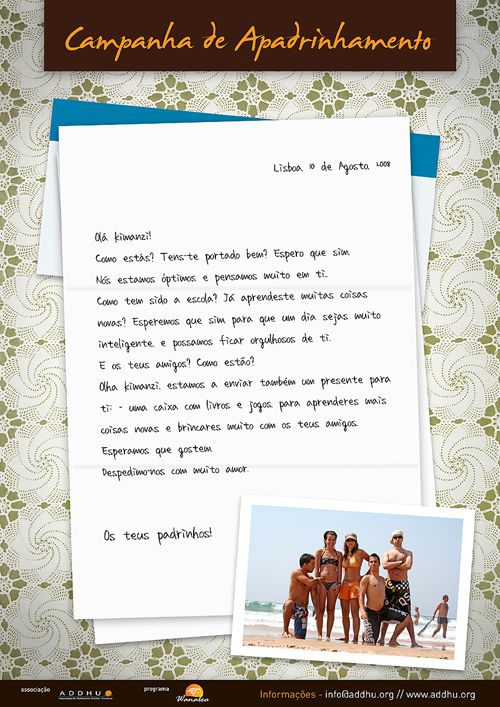 Campanha de Apadrinhamento
Lisboa 10 de Agosto 2008
Olá Kimanzi!
Como estás? Tens-te portado bem? Espero que sim.
Nós estamos óptimos e pensamos muito em ti.
Como tem sido a escola? Já aprendeste muitas coisas
novas? Esperemos que sim para que um dia sejas muito
inteligente, e possamos ficar orgulhosos de ti.
E os teus amigos? Como estão?
Olha Kimanzi, estamos a enviar também um presente para
ti: - uma caixa com livros e jogos, para aprenderes mais
coisas novas e brincares muito com os teus amigos.
Esperamos que gostem.
Despedimo-nos com muito amor.
Os teus padrinhos!
associação
ADDHU
programa
Wanalea
Informações - info@addhu.org // www.addhu.org